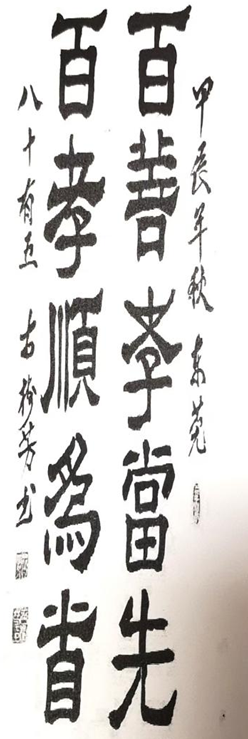 甲辰年秋 东莞
百善孝當先
百孝順為首
八十有五 古芳书